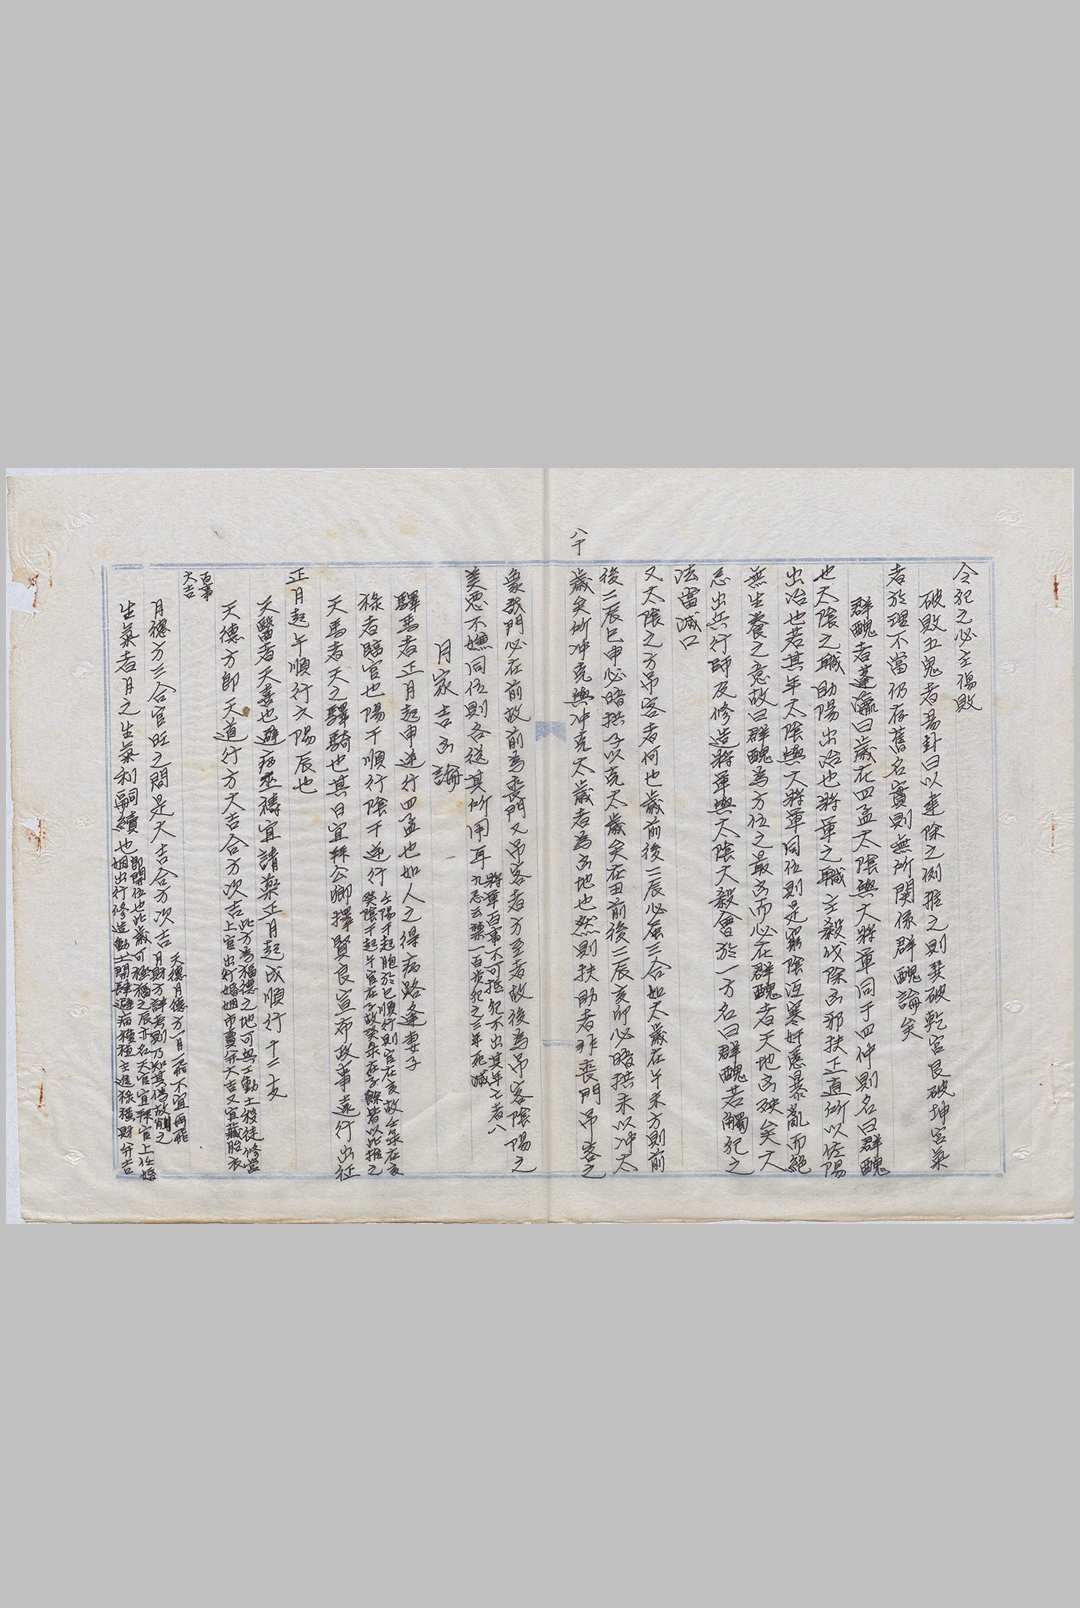 令犯之必主傷敗
破敗五鬼者易卦曰以連除之例推之則癸破乾宮艮破坤宮氣
者於理不當仍存舊名實則無所関係群醜論矣
群醜者蓬瀛曰歲在四孟太陰與大將軍同于四仲則名曰群醜
也太陰之職助陽出治也將軍之職主殺伐除凶邪扶正直所以佐陽
出治也若其年太陰與大將軍同位則是窮陰沍寒奸慝暴亂而絕
無生養之意故曰群醜為方位之最凶而必在群醜者天地凶殃矣大
忌出兵行師及修造將軍與太陰大殺會於一方名曰群醜若觸犯之
法當滅口
又太陰之方吊客者何也歲前後二辰必屬三合如太歲在午未方則前
後二辰巳申必暗拱子以克太歲矣在田前後二辰亥卯必暗拱未以冲太
歲矣所冲克與冲克太歲者為凶地也然則扶助者非喪門吊客之
八十
象我門必在前故前為喪門又吊客者方至者故後為吊客陰陽之
美惡不嫌同位則各從其所用耳 將軍百事不可抵犯不出其年亡者八
九忌云禁一百步犯之三年死滅
月家吉凶論
驛馬者正月起申逆行四孟也如人之得病路逢妻子
祿者臨官也陽干順行陰干逆行
壬陽干起胞於巳順行則官在亥故壬祿在亥
癸陰干起午官在子故癸祿在子餘皆以此推之
天馬者天之驛騎也其日宜拜公卿擇賢良宣布政事遠行出征
正月起午順行六陽辰也
天醫者天喜也避病巫禱宜請藥正月起戌順行十二支
天德方即天道行方大吉合方次吉
此方為福德之地可興工動土移徙修營
上官出行婚姻市賣竝大吉又宜藏胞衣
百事
大吉
月德方三合官旺之間是大吉合方次吉
天德月德方一月二配不宜向配
生氣者月之生氣利嗣續也